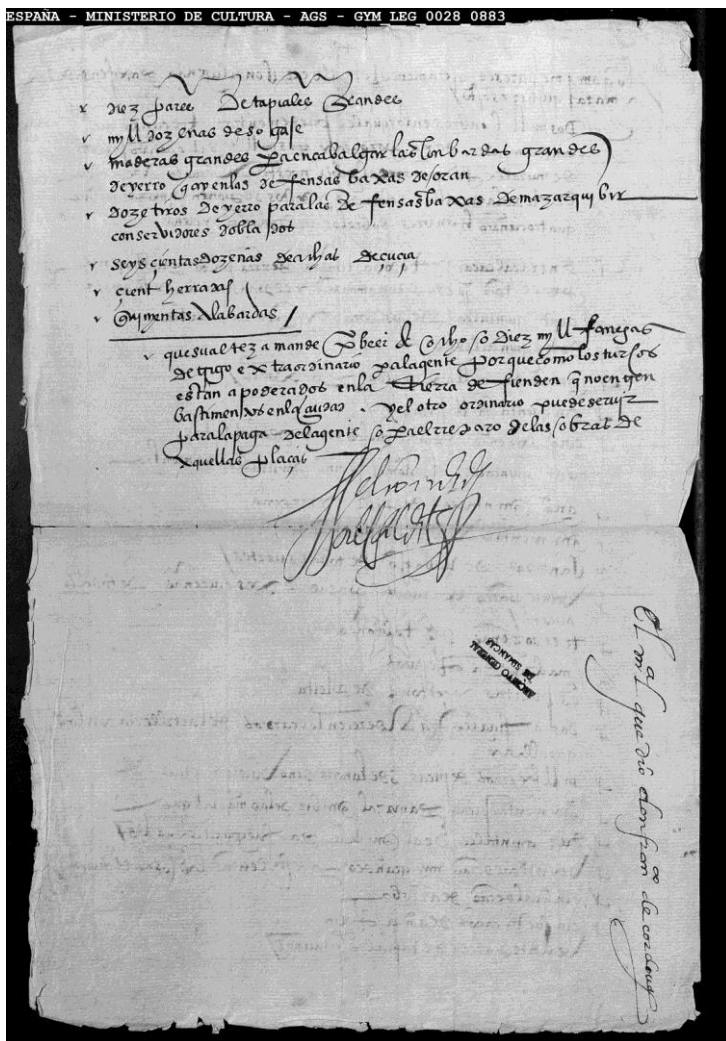 ESPAÑA - MINISTERIO DE CULTURA - AGS - GYM LEG 0028 0883
diez pares de tapiales grandes
myll dozenas de soga
maderas grandes pa encabalgar las lonbardas grandes
de yerro q ay en las defensas baxas de oran
doze tiros de yerro para las defensas baxas de mazarquibir
con servidores doblados
seys çientas dozenas de
çient herradas
quinientas alabardas
que su alteza mande diez myll fanegas
de trigo extraordinario pa la gente porque como los turcos
estan apoderados en la tierra defienden q no entren
bastimentos en la çiudad y el otro ordinario puede servir
para la paga de la gente pa el rreparo de las obras de
aquellas plaças
ARCHIVO GENERAL
DE SIMANCAS
El mal que dio don franco de cordoua